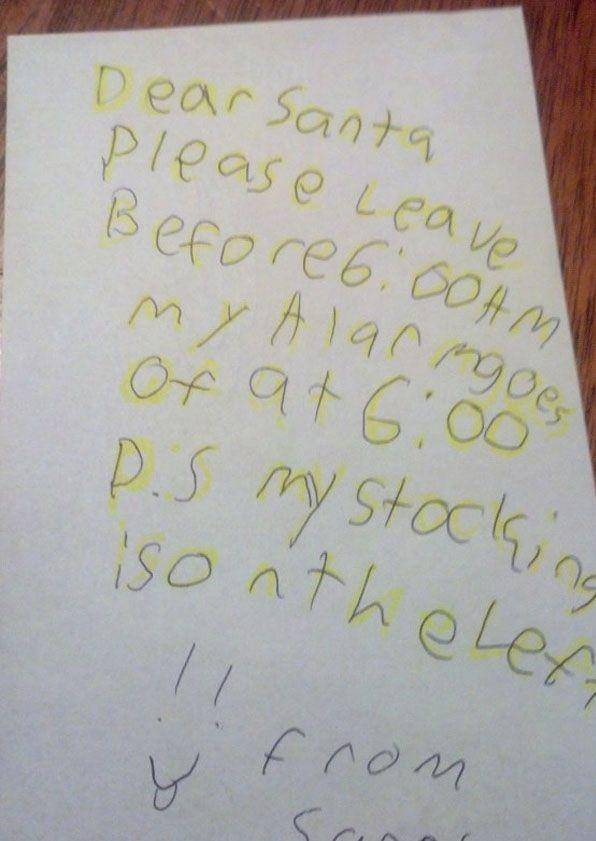 Dear Santa
Please Leave
Before 6:00 AM
my Alarm goes
of at 6:00
P.S my stocking
is on the Left
!!
from